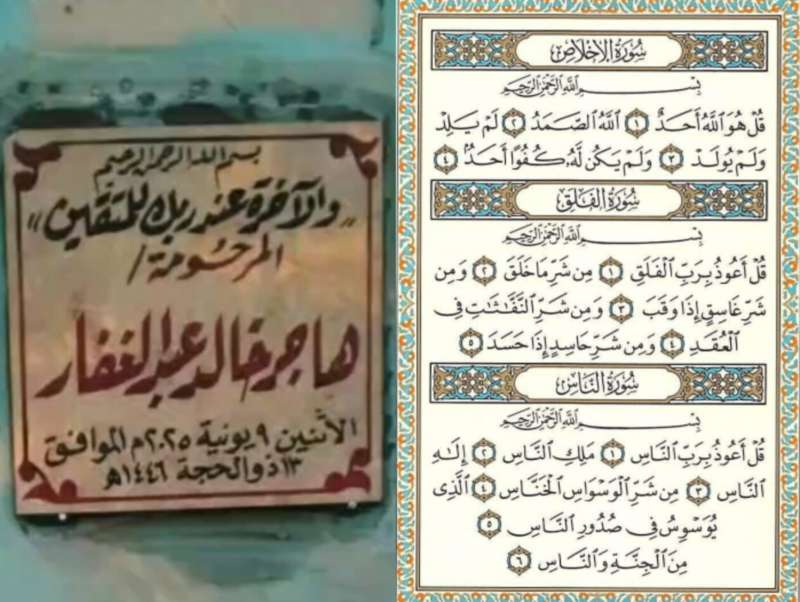 بسم الله الرحمن الرحيم
"والآخرة عند ربك للمتقين"
المرحومة /
هاجر خالد عبد الغفار
الأثنين ٩ يونية ٢٠٢٥م الموافق
١٣ ذو الحجة ١٤٤٦هـ
سُورَةُ الإِخْلَاصِ
بِسْمِ اللَّهِ الرَّحْمَٰنِ الرَّحِيمِ
قُلْ هُوَ ٱللَّهُ أَحَدٌ ١ ٱللَّهُ ٱلصَّمَدُ ٢ لَمْ يَلِدْ
وَلَمْ يُولَدْ ٣ وَلَمْ يَكُن لَّهُۥ كُفُوًا أَحَدٌۢ ٤
سُورَةُ الفَلَقِ
بِسْمِ اللَّهِ الرَّحْمَٰنِ الرَّحِيمِ
قُلْ أَعُوذُ بِرَبِّ ٱلْفَلَقِ ١ مِن شَرِّ مَا خَلَقَ ٢ وَمِن
شَرِّ غَاسِقٍ إِذَا وَقَبَ ٣ وَمِن شَرِّ ٱلنَّفَّٰثَٰتِ فِى
ٱلْعُقَدِ ٤ وَمِن شَرِّ حَاسِدٍ إِذَا حَسَدَ ٥
سُورَةُ النَّاسِ
بِسْمِ اللَّهِ الرَّحْمَٰنِ الرَّحِيمِ
قُلْ أَعُوذُ بِرَبِّ ٱلنَّاسِ ١ مَلِكِ ٱلنَّاسِ ٢ إِلَٰهِ
ٱلنَّاسِ ٣ مِن شَرِّ ٱلْوَسْوَاسِ ٱلْخَنَّاسِ ٤ ٱلَّذِى
يُوَسْوِسُ فِى صُدُورِ ٱلنَّاسِ ٥
مِنَ ٱلْجِنَّةِ وَٱلنَّاسِ ٦